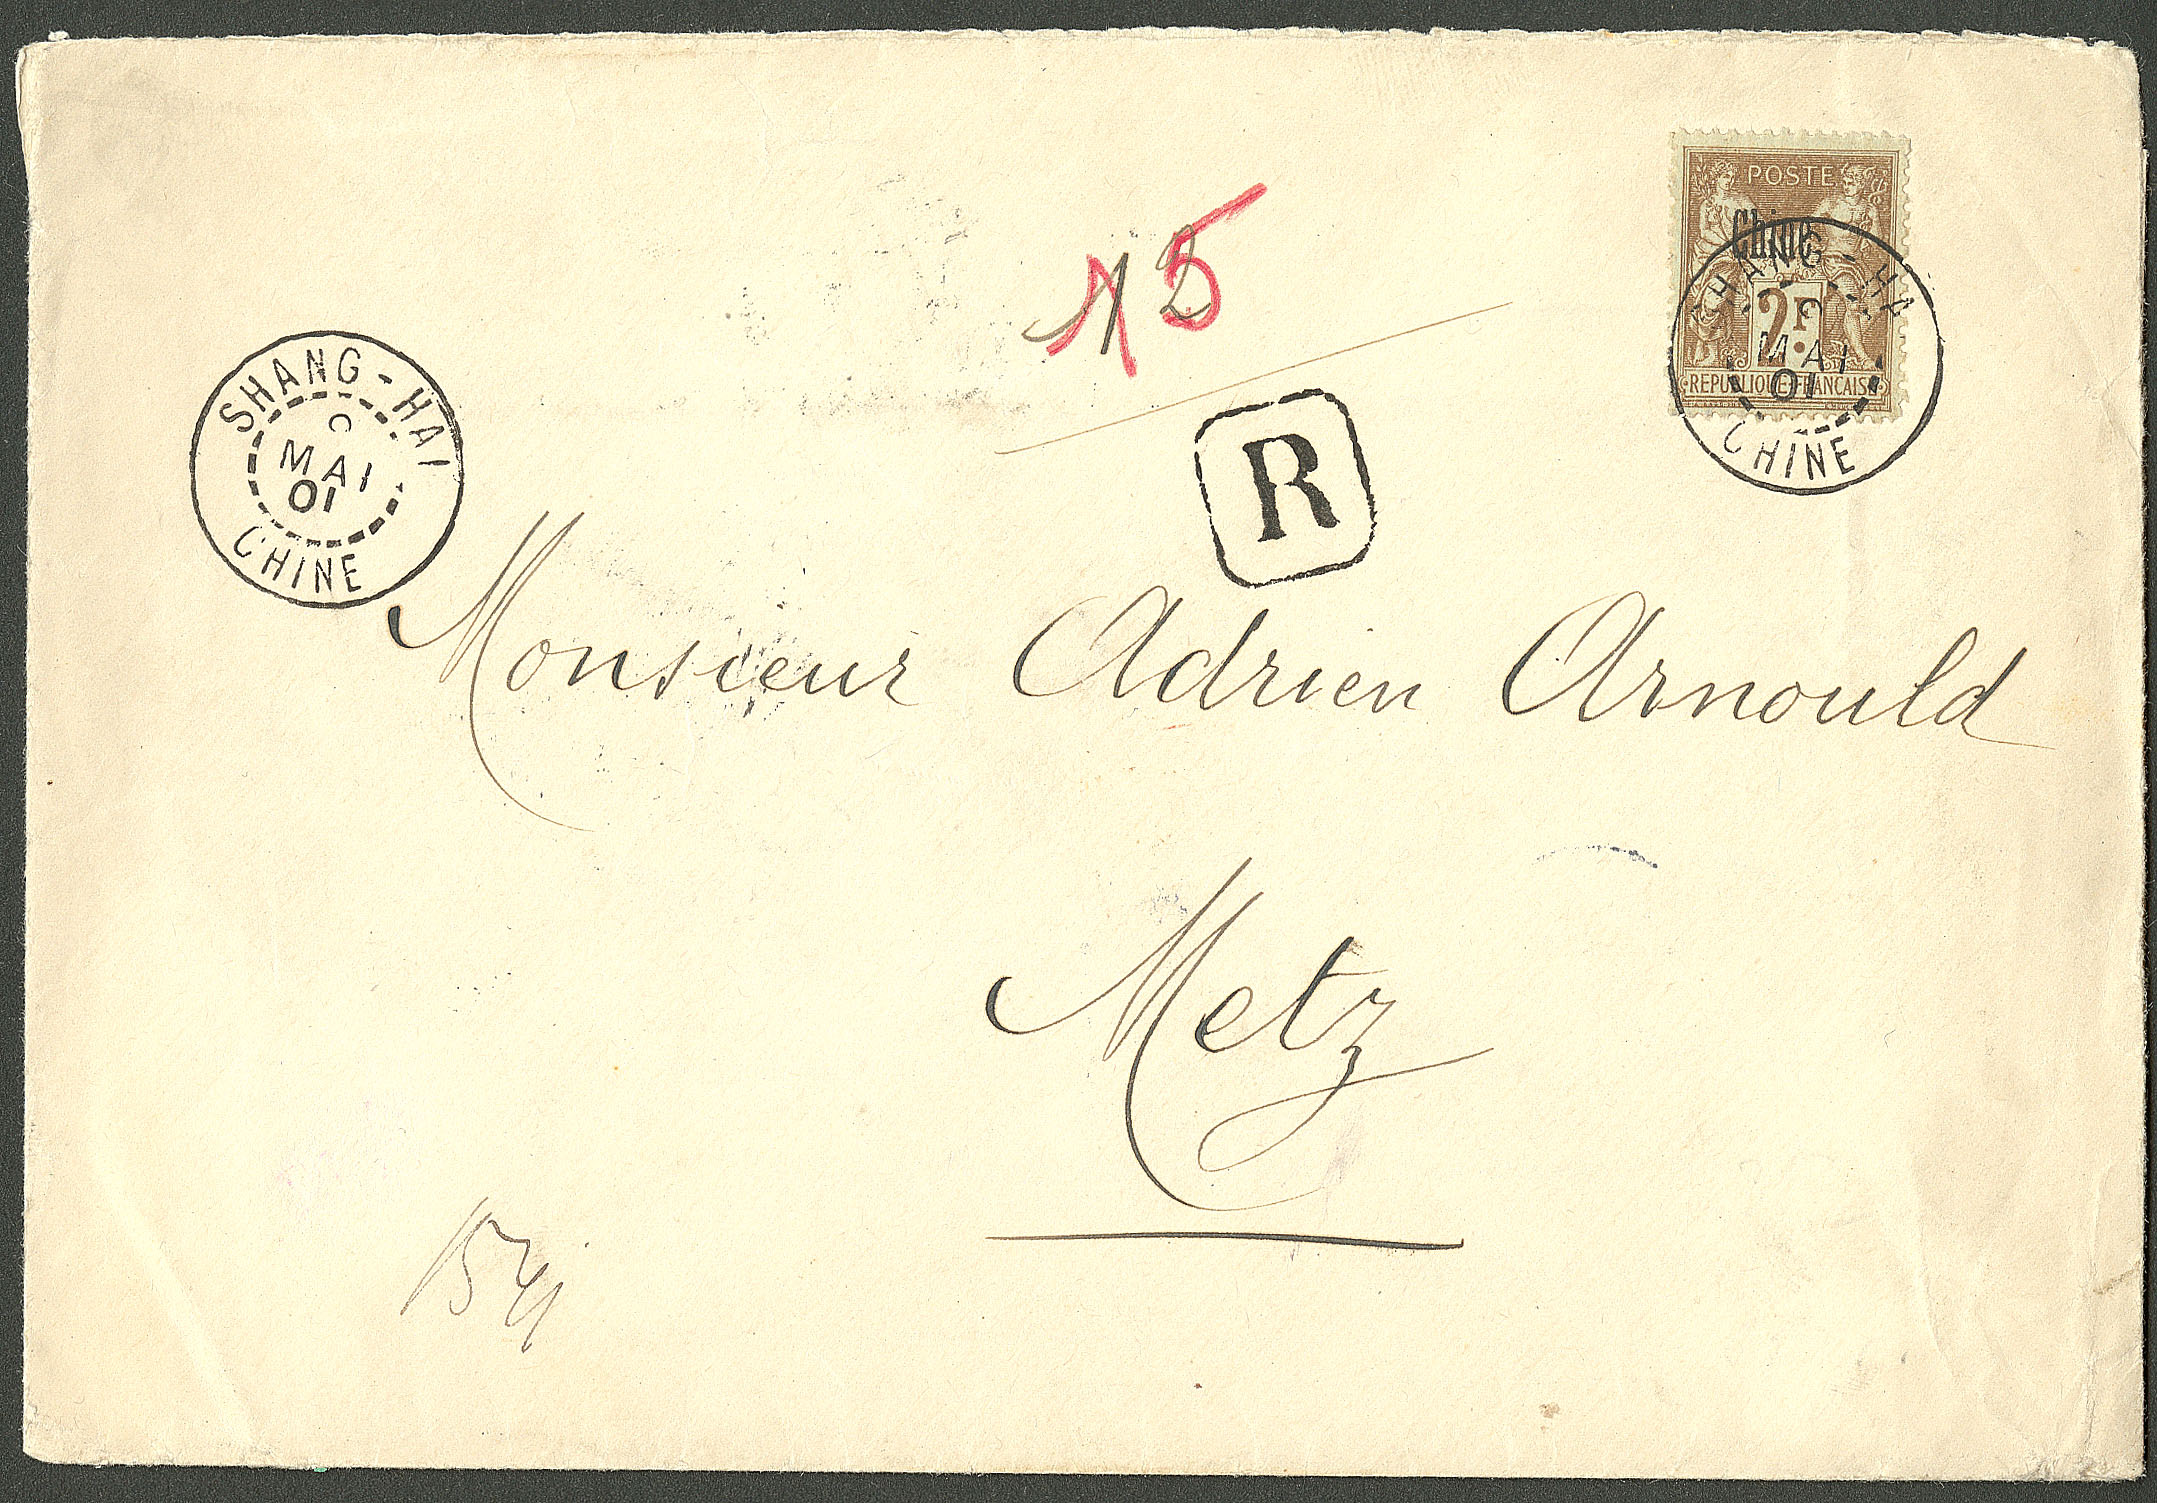 POSTE
Chine
2F.
REPUBLIQUE FRANCAISE
SHANG-HA
MAI
01
CHINE
15
SHANG-HAI
MAI
01
CHINE
R
Monsieur Adrien Arnould
Metz